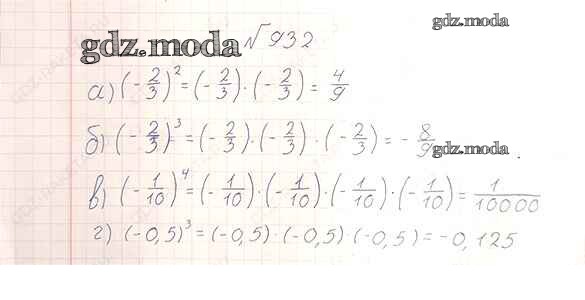 gdz.moda
gdz.moda №932
а) (-2/3)² = (-2/3)·(-2/3) = 4/9
б) (-2/3)³ = (-2/3)·(-2/3)·(-2/3) = -8/9
gdz.moda
в) (-1/10)⁴ = (-1/10)·(-1/10)·(-1/10)·(-1/10) = 1/10000
г) (-0,5)³ = (-0,5)·(-0,5)·(-0,5) = -0,125